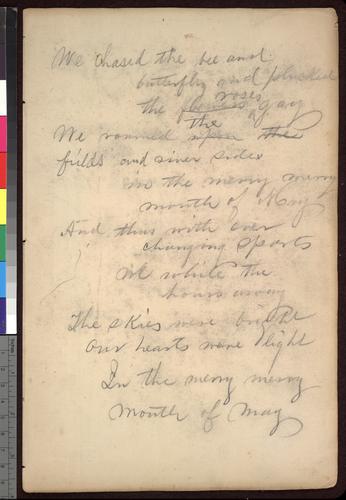 We chased the bee and
butterfly and plucked
roses
the flowers gay
the
We roamed upon the
fields and river sides
in the merry merry
month of May
And thus with ever
changing sports
we while the
hours away
The skies were bright
Our hearts were light
In the merry merry
Month of May